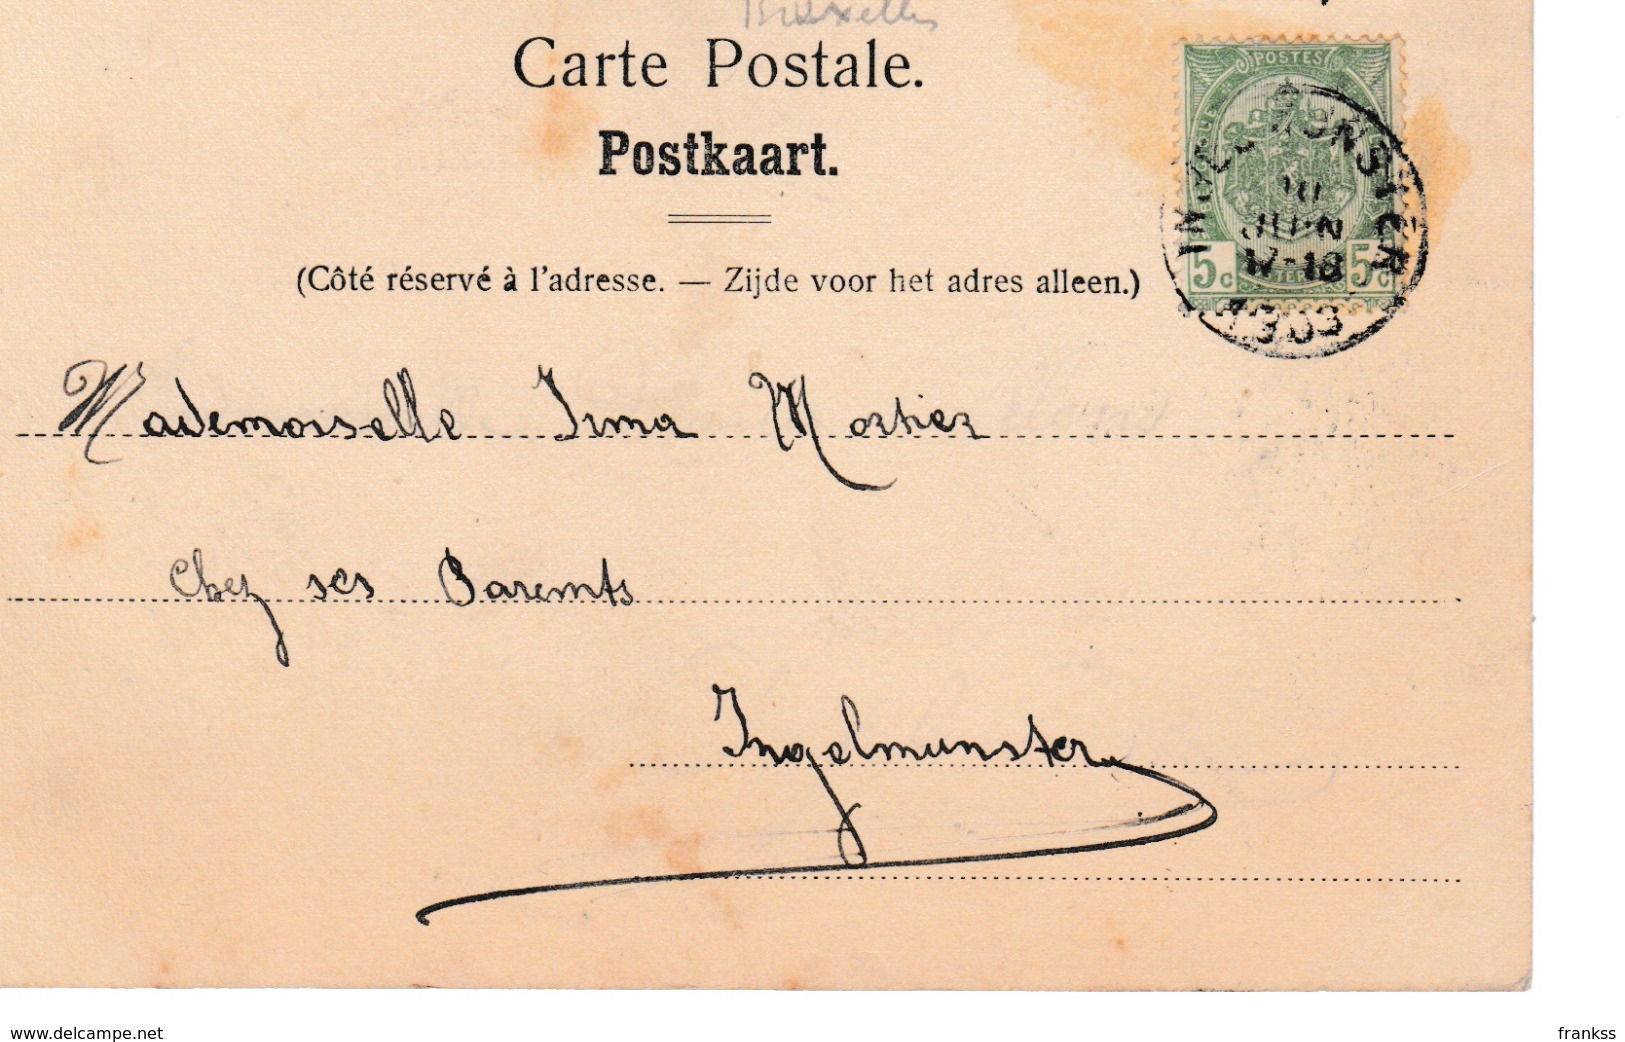 Bruxelles
Carte Postale.
Postkaart.
(Côté réservé à l'adresse. — Zijde voor het adres alleen.)
POSTES
5c 5c
10
JUIN
17-18
1903
Mademoiselle Irma Mortier
Chez ses Parents
Ingelmunster
www.delcampe.net
frankss